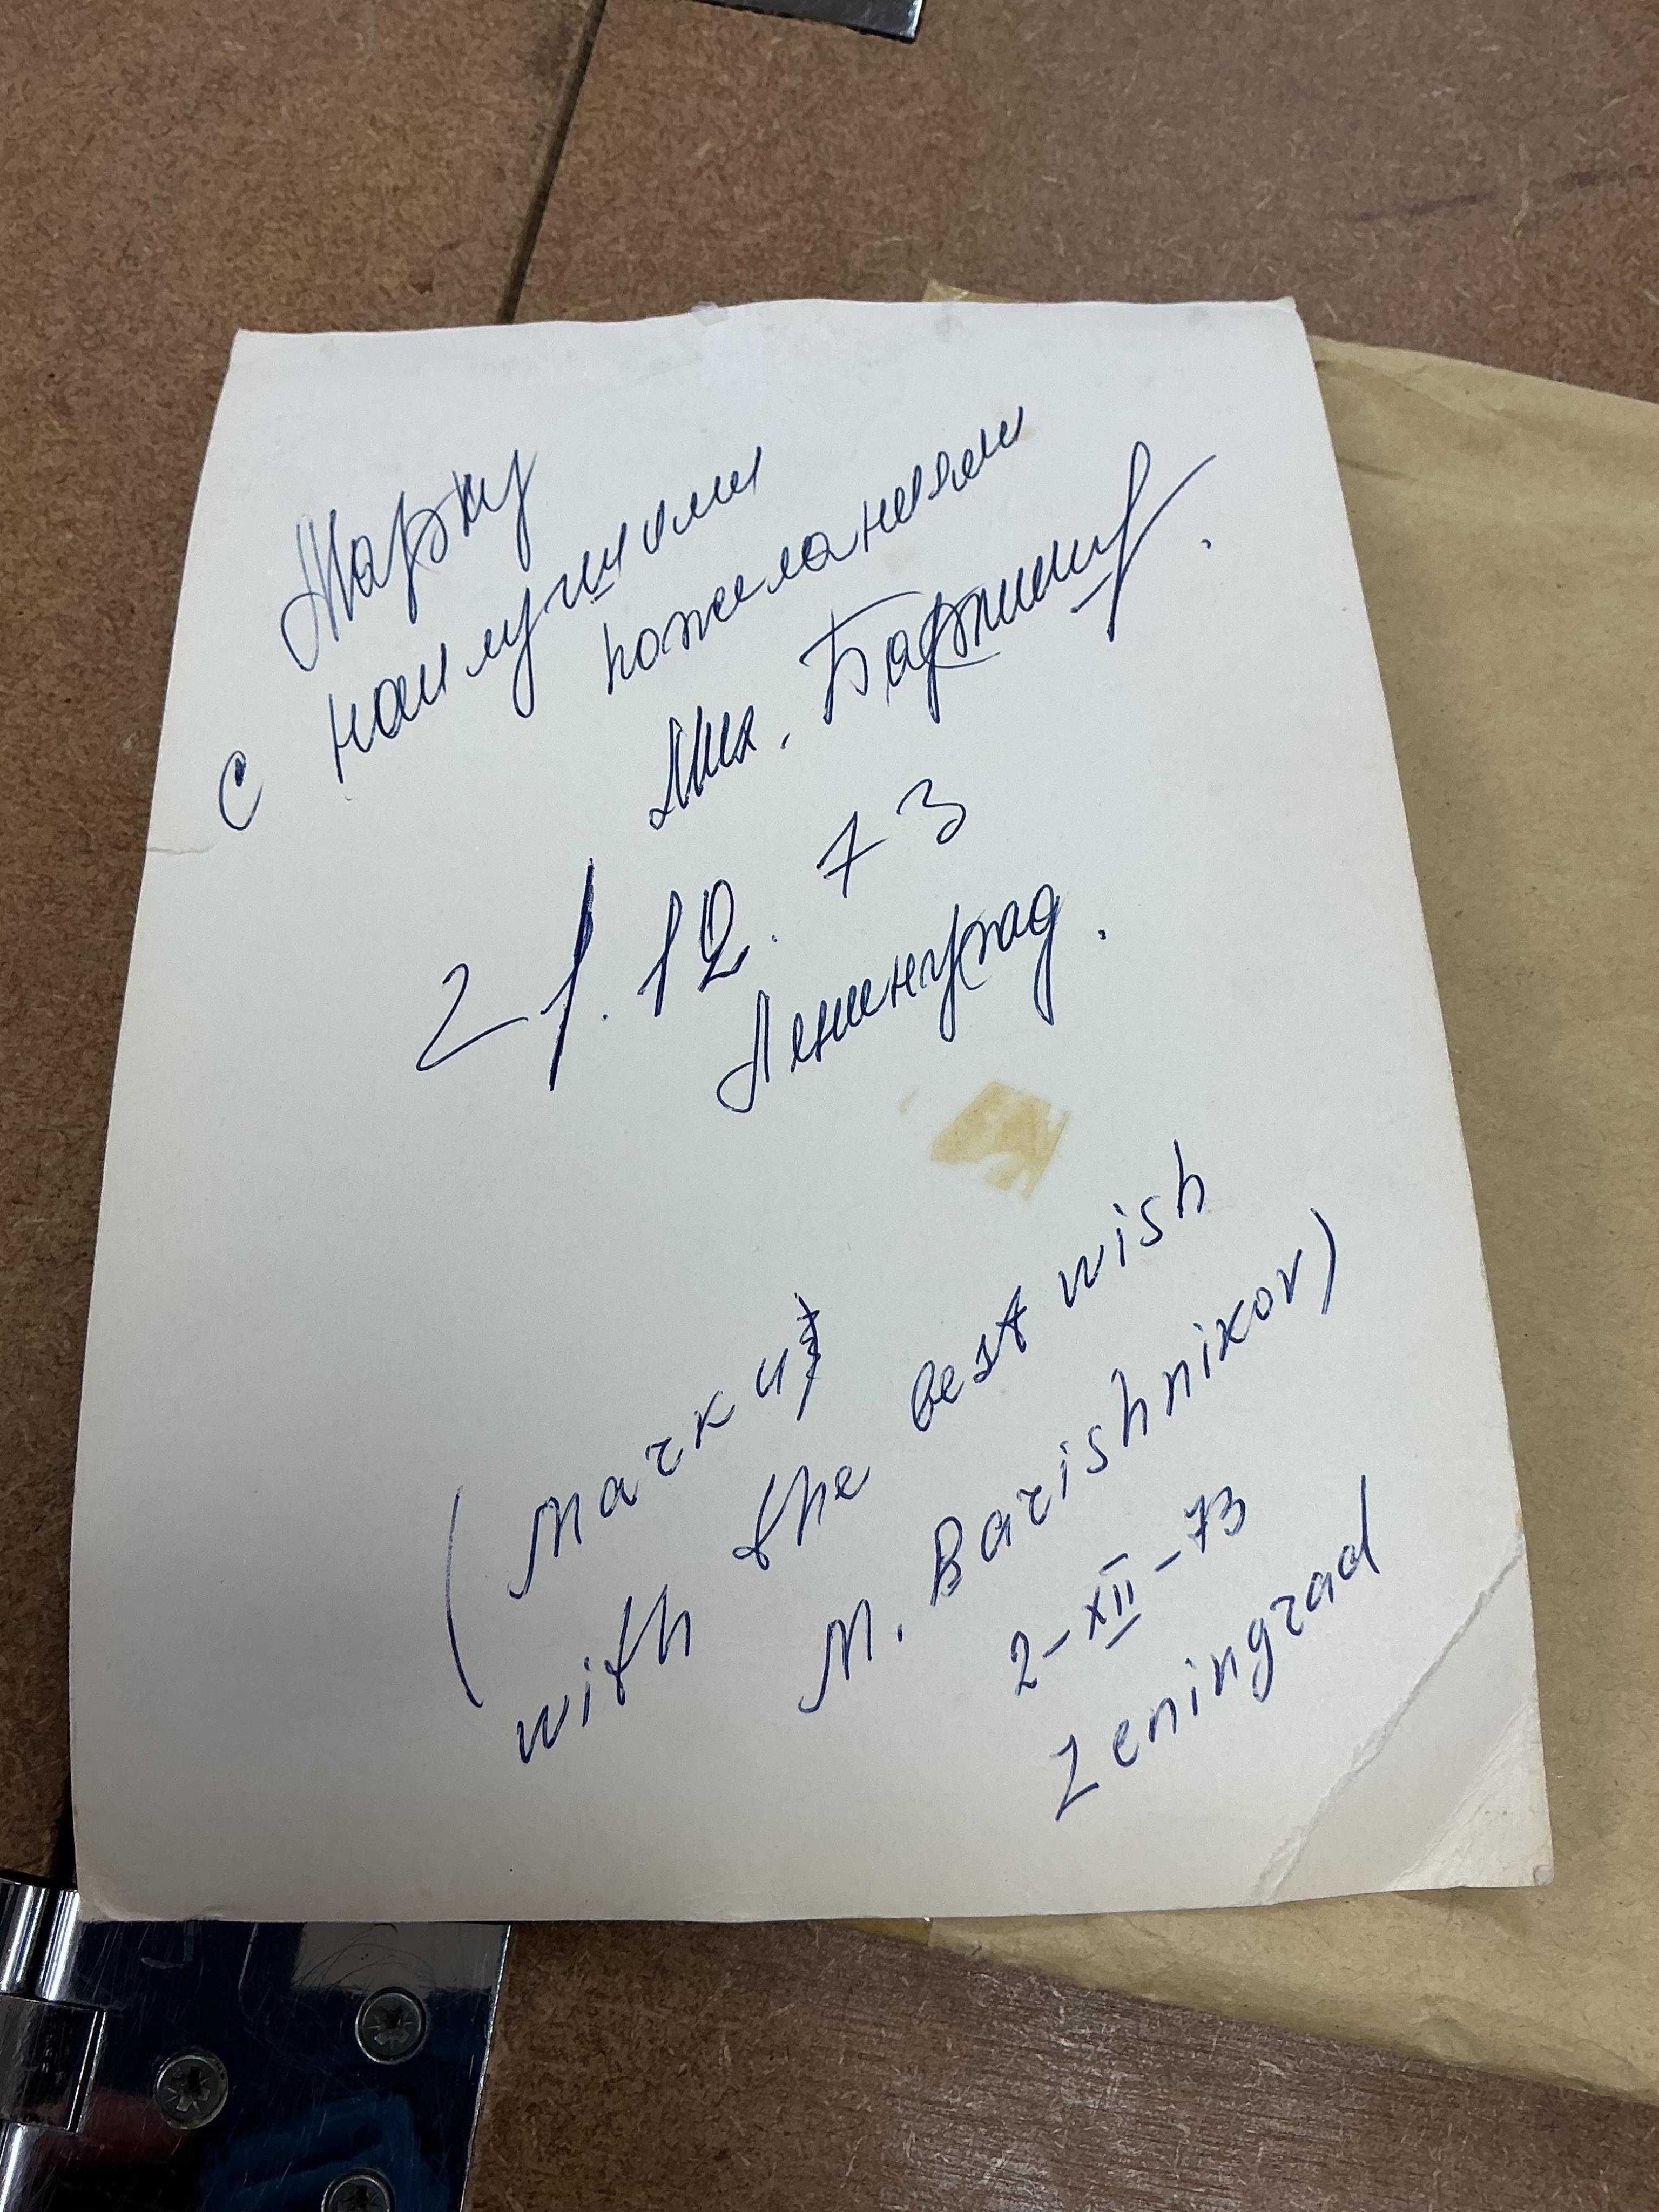 Марку
с наилучшими
пожеланиями
Мих. Барышников.
2/. 12. 73
Ленинград.
(Marku
with the best wish
M. Barishnikov)
2-XII-73
Leningrad